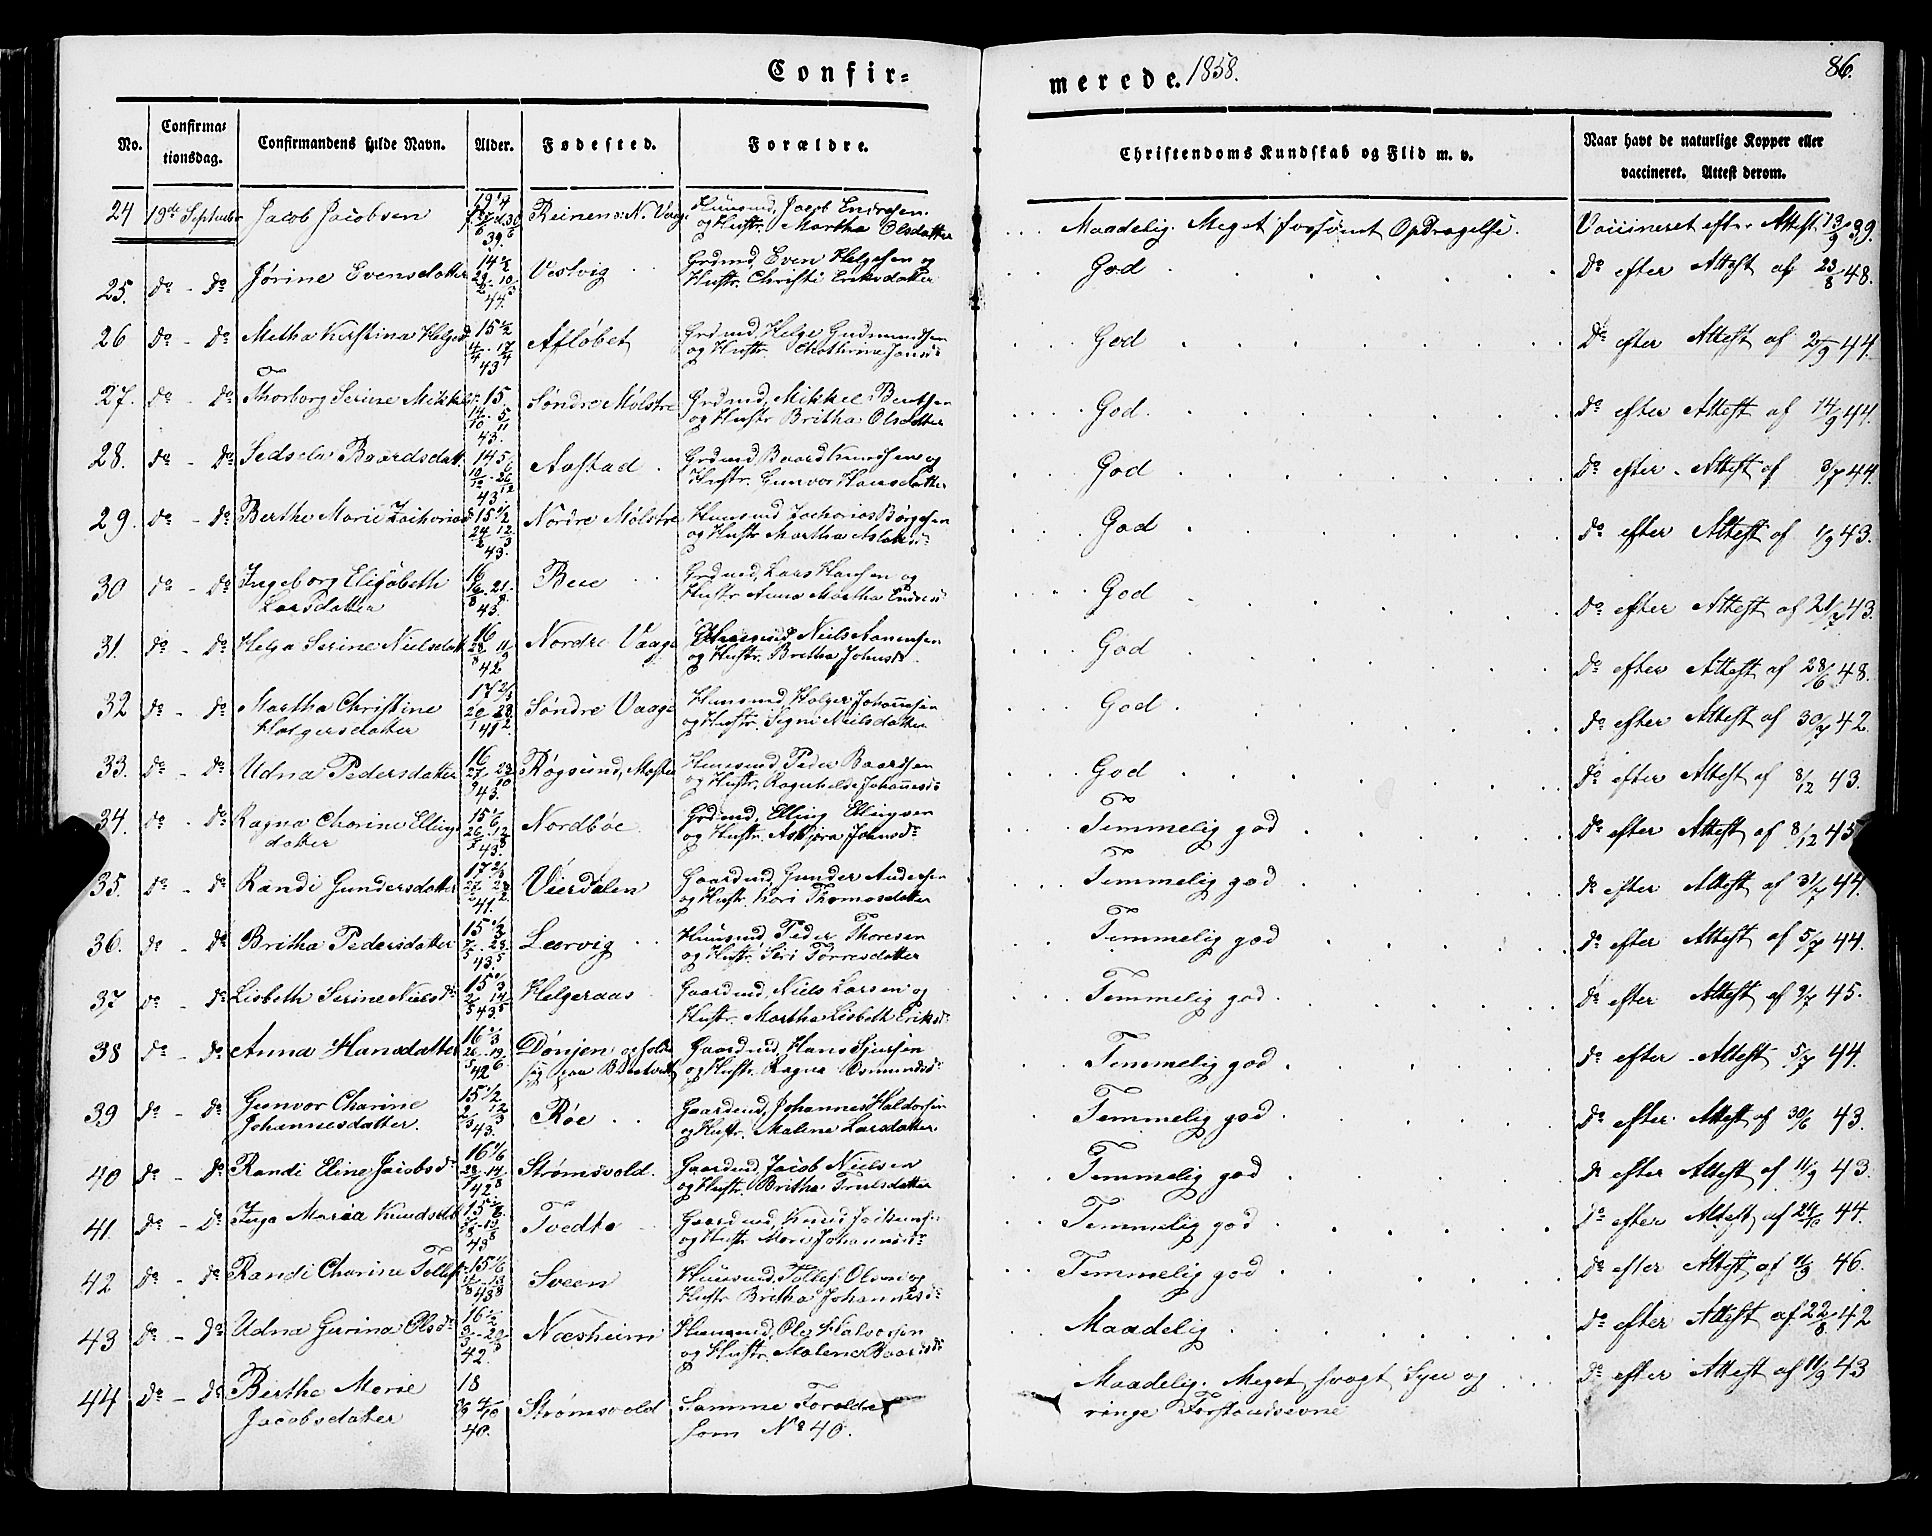 Confir=
merede. 1858.
86.
No.
Confirma=
tionsdag.
Confirmandens fulde Navn.
Alder.
Fødested.
Forældre.
Christendoms Kundskab og Flid m. v.
Naar havt de naturlige Kopper eller
vaccineret. Attest derom.
24 19de September Jacob Jacobsen 39. Reinens N. Vaage Huusmd, Jacob Endresen
og Hustr. Martha Olsdatter Maadelig. Meget forsømt Opdragelse. Vaccineret efter Attest 13/9 39.
25. do - do Jørine Evensdatter 44. Vestvig Grdmd, Even Helgesen og
Hustr. Christi Eriksdatter God do efter Attest af 23/8 48.
26 do - do Metha Kirstina Helgesd 15 1/2 43 Afløbet Grdmd, Helge Gudmundsen
og Hustr. God do efter Attest af 2/9 44.
27. do - do Thorborg Serine Mikkels 15. 43. Søndre Mølstre Grdmd, Mikkel Bentsen
og Hustr Britha Olsdatter God. do efter Attest af 14/9 44.
28. do - do Baardsdatt 43 Aastad Grdmd, Baard Knudsen og
Hustr. Gunvor Hansdatter God do efter Attest af 3/7 44.
29. do - do Berthe Marie Zachariasd 15 1/2 43. Nordre Mølstre Huusmd Zacharias Børgesen
og Hustr Martha Aslaksd God do efter Attest af 1/9 43.
30 do - do Ingeborg Elisabeth
Larsdatter 16 43. Bue Grdmd, Lars Hansen og
Hustr Anna Martha Endresd God do efter Attest af 21/7 43.
31. do - do Helga Serine Nielsdatt 16 42 Nordre Vaage Huusmd Niels Aamensen
og Hustr. Britha Johnsd. God do efter Attest af 28/6 48.
32 do - do Martha Christine
Holgersdatter 17 2/3 41 Søndre Vaage Huusmd, Holger Johannesen
og Hustr. Signi Nielsdatter God do efter Attest af 30/7 42.
33. do - do Udna Pedersdatter 16 43. Røgsund, Moster Huusmd Peder Baardsen
og Hustr. Ragnhilde Johannesd God do efter Attest af 8/12 43.
34. do - do Ragna Charine Ellings
datter 43. Nordbøe Grdmd, Elling Ellingsen
og Hustr. Asbjøra Johnsdr Temmelig god do efter Attest af 8/12 45
35. do - do Randi Gundersdatter 17 2/3 41. Vierdalen Gaardmd Gunder Andersen
og Hustr. Kari Thomasdatter Temmelig god do efter Attest af 31/7 44.
36. do - do Britha Pedersdatter 15 1/3 43. Leervig Huusmd Peder Thoresen
og Hustr. Siri Torresdatter Temmelig god do efter Attest af 5/7 44.
37 do - do Lisbeth Serine Nielsdr 15 1/3 43 Helgeraas Gaardmd, Niels Larsen og
Hustr. Martha Lisbeth Eriksdr Temmelig god do efter Attest af 9/7 45.
38 do - do Anna Hansdatter 16 1/3 42 Dønjen Gaardmd, Hans Sjursen
og Hustr. Ragna Osmundsdr Temmelig god do efter Attest 5/7 44.
39 do - do Gunvor Charine
Johannesdatter. 15 1/2 43. Røe Gaardmd, Johannes Haldorsen
og Hustr. Malene Larsdatter Temmelig god do efter Attest af 30/6 43.
40 do - do Randi Eline Jacobsdr 16 1/6 42 Strømsvold. Gaardmd, Jacob Nielsen
og Hustr. Britha Truelsdatter Temmelig god do efter Attest af 11/9 43.
41. do - do Inga Maria Knudsdatt 43 Tvedte Gaardmd, Knud
og Hustr Mari Johannesdr Temmelig god do efter Attest af 24/10 44.
42 do - do Randi Charine Tollefs 15 1/6 43 Sveen Huusmd, Tollef Olsen og
Hustr Britha Johannesdr Temmelig god do efter Attest af 46.
43 do - do Udna Gurina Olsdr 16 1/2 42. Næsheim Huusmd, Ole Halvorsen
og Hustr. Malene Baardsdr Maadelig do efter Attest af 22/8 42
44 do - do Berthe Marie
Jacobsdatter 18 40. Strømsvold Samme Forældre
som No 40. Maadelig. Meget svagt Syn og
ringe Forstandsevne do efter Attest af 11/9 43